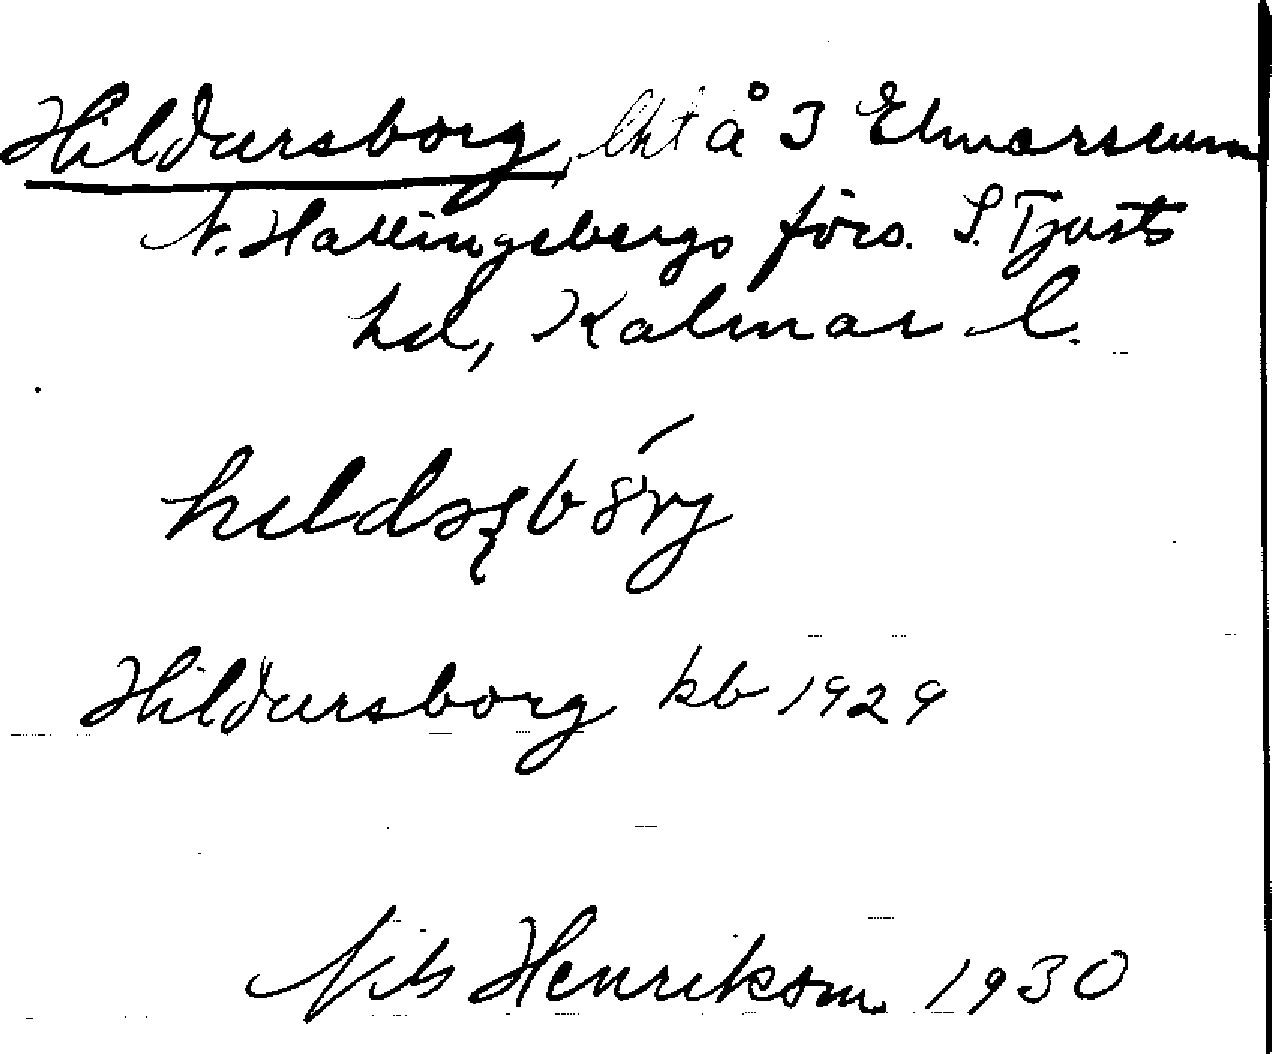 Hildursborg, lht å 3 Elmarsrum
N. Hallingebergs förs. S. Tjusts
hd, Kalmar l.
Hildursborg kb 1929
Nils Henrikson 1930